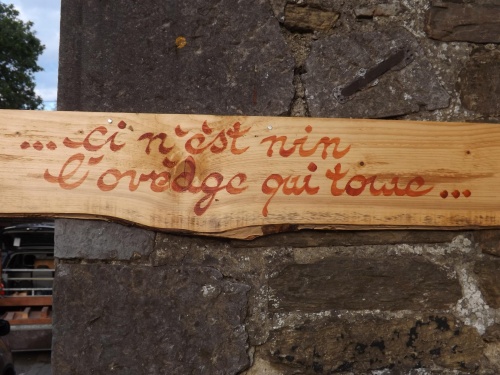 ... ci n'èst nin
l'ovèdge qui towe ...